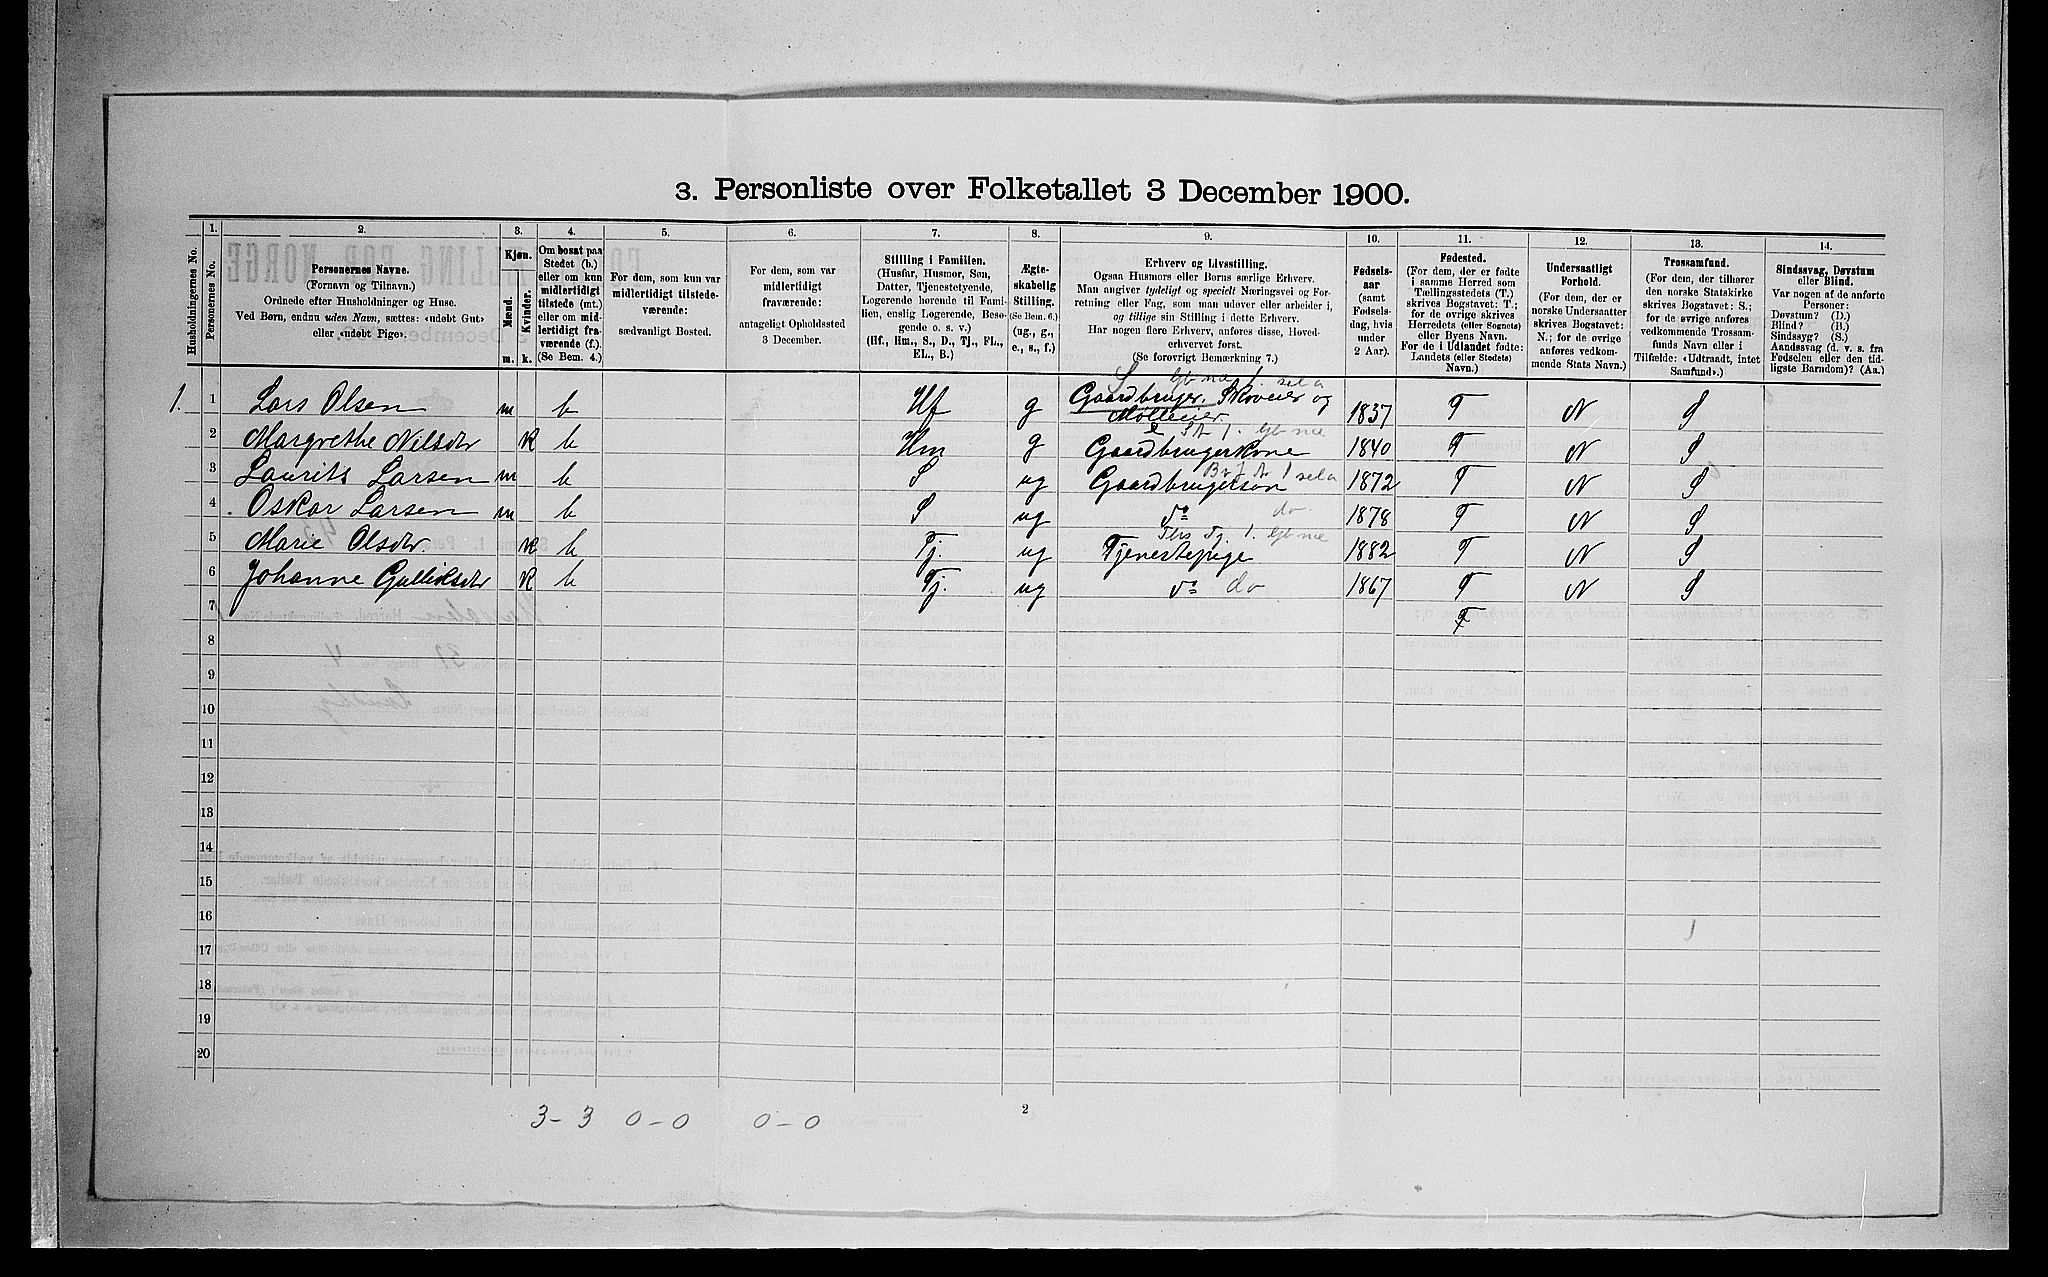 3. Personliste over Folketallet 3 December 1900.
Husholdningernes No.
1. Personernes No.
2. Personernes Navne. (Fornavn og Tilnavn.) Ordnede efter Husholdninger og Huse. Ved Børn, endnu uden Navn, sættes: «udøbt Gut» eller «udøbt Pige».
3. Kjøn. Mænd. Kvinder. m. k.
4. Om bosat paa Stedet (b.) eller om kun midlertidigt tilstede (mt.) eller om midlertidigt fraværende (f.). (Se Bem. 4.)
5. For dem, som kun var midlertidigt tilstedeværende: sædvanligt Bosted.
6. For dem, som var midlertidigt fraværende: antageligt Opholdssted 3 December.
7. Stilling i Familien. (Husfar, Husmor, Søn, Datter, Tjenestetyende, Logerende hørende til Familien, enslig Logerende, Besøgende o. s. v.) (Hf., Hm., S., D., Tj., FL., EL., B.)
8. Ægteskabelig Stilling. (Se Bem. 6.) (ug., g., e., s., f.)
9. Erhverv og Livsstilling. Ogsaa Husmors eller Børns særlige Erhverv. Man angiver tydeligt og specielt Næringsvei og Forretning eller Fag, som man udøver eller arbeider i, og tillige sin Stilling i dette Erhverv. Har nogen flere Erhverv, anføres disse, Hovederhvervet først. (Se forøvrigt Bemærkning 7.)
10. Fødselsaar (samt Fødselsdag, hvis under 2 Aar).
11. Fødested. (For dem, der er fødte i samme Herred som Tællingsstedets (T.) skrives Bogstavet: T.; for de øvrige skrives Herredets (eller Sognets) eller Byens Navn. For de i Udlandet fødte: Landets (eller Stedets) Navn.)
12. Undersaatligt Forhold. (For dem, der er norske Undersaatter skrives Bogstavet: N.; for de øvrige anføres vedkommende Stats Navn.)
13. Trossamfund. (For dem, der tilhører den norske Statskirke skrives Bogstavet: S.; for de øvrige anføres vedkommende Trossamfunds Navn eller i Tilfælde: «Udtraadt, intet Samfund».)
14. Sindssvag, Døvstum eller Blind. Var nogen af de anførte Personer: Døvstum? (D.) Blind? (B.) Sindssyg? (S.) Aandssvag (d. v. s. fra Fødselen eller den tidligste Barndom)? (Aa.)
1. 1 Lars Olsen m b Hf g Gaardbruger, Skoveier og Mølleier 1837 T N S
2 Margrethe Nilsdtr k b Hm g Gaardbrugerkone 1840 T N S
3 Laurits Larsen m b S ug Gaardbrugersøn 1872 T N S
4 Oskar Larsen m b S ug do do. 1878 T N S
5 Marie Olsdtr. k b Tj. ug Tjenestepige 1882 T N S
6 Johanne Gulliksdtr k b Tj. ug do do 1867 T N S
7 T
8
9
10
11
12
13
14
15
16
17
18
19
20
3-3 0-0 0-0
2